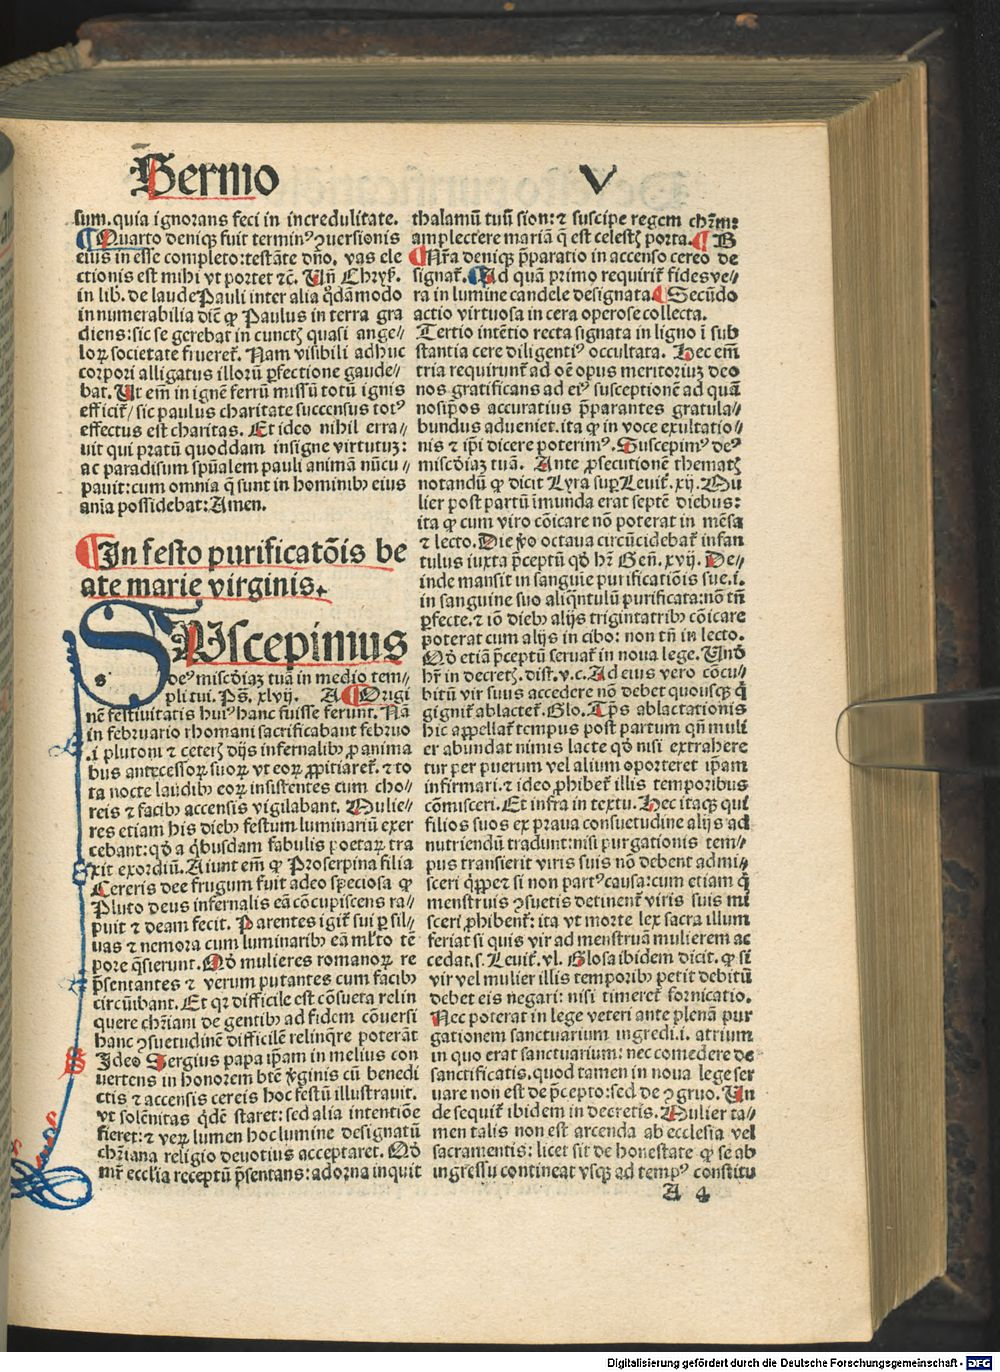 Sermo V
sum. quia ignorans feci in incredulitate.
Quarto deniqꝫ fuit terminꝰ ↄuersionis
eius in esse completo: testāte dño. vas ele
ctionis est mihi vt portet ⁊c. Uñ Chryſ.
in lib. de laude Pauli inter alia q̇dāmodo
innumerabilia diē ꝙ Paulus in terra gra
diens: sic se gerebat in cunctꝭ quasi ange⸗
loꝝ societate frueret̄. Nam visibili adhuc
corpori alligatus illorū ꝑfectione gaude⸗
bat. Ut em̄ in ignē ferrū missū totū ignis
efficit̄ / sic paulus charitate succensus totꝰ
effectus est charitas. Et ideo nihil erra⸗
uit qui pratū quoddam insigne virtutuꝫ:
ac paradisum spūalem pauli animā nūcu⸗
pauit: cum omnia q̄ sunt in hominibꝫ eius
anīa possidebat: Amen.
In festo purificatōis be
ate marie virginis.
SUscepimus
deꝰ misc̄diaꝫ tuā in medio tem⸗
pli tui. Pš. xlvij. A Origi
nē festiuitatis huiꝰ hanc fuisse ferunt. Nā
in februario rhomani sacrificabant februo
.i plutoni ⁊ ceterꝭ dijs infernalibꝫ ꝓ anima
bus antecessoꝝ suoꝝ vt eoꝝ ꝓpitiaret̄. ⁊ to
ta nocte laudibꝫ eoꝝ insistentes cum cho⸗
reis ⁊ facibꝫ accensis vigilabant. Mulie⸗
res etiam his diebꝫ festum luminariū exer
cebant: qđ a q̇busdam fabulis poetaꝝ tra
xit exordiū. Aiunt em̄ ꝙ Proserpina filia
Cereris dee frugum fuit adeo speciosa ꝙ
Pluto deus infernalis eā cōcupiscens ra⸗
puit ⁊ deam fecit. Parentes igit̄ sui ꝑ sil⸗
uas ⁊ nemora cum luminaribꝫ eā ml̄to tē
pore q̄sierunt. Qđ mulieres romanoꝝ re
p̄sentantes ⁊ verum putantes cum facibꝫ
circūibant. Et qꝛ difficile est cōsueta relin
quere chr̄iani de gentibꝫ ad fidem cōuersi
hanc ↄsuetudinē difficilē relinq̄re poterāt
Ideo Sergius papa ip̄am in melius con
vertens in honorem bt̄e v̄ginis cū benedi
ctis ⁊ accensis cereis hoc festū illustrauit.
vt solēnitas q̇dē staret: sed alia intentiōe
fieret: ⁊ veꝝ lumen hoc lumine designatū
chr̄iana religio deuotius acceptaret. Qđ
mr̄ eccl̄ia receptū p̄sentans: adorna inquit
thalamū tuū sion: ⁊ suscipe regem chr̄m:
amplectere mariā q̄ est celestꝭ porta. B
Nr̄a deniqꝫ p̄paratio in accenso cereo de
signat̄. Ad quā primo requirit̄ fides ve⸗
ra in lumine candele designata. Secūdo
actio virtuosa in cera operose collecta.
Tertio intētio recta signata in ligno ĩ sub
stantia cere diligentiꝰ occultata. Hec em̄
tria requirunt̄ ad oē opus meritoriuꝫ deo
nos gratificans ad eiꝰ susceptionē ad quā
nosip̄os accuratius p̄parantes gratula⸗
bundus adueniet. ita ꝙ in voce exultatio⸗
nis ⁊ ip̄i dicere poterimꝰ. Suscepimꝰ deꝰ
misc̄diaꝫ tuā. Ante ꝓsecutionē thematꝭ
notandū ꝙ dicit Lyra suꝑ Leuit̄. xij. Mu
lier post partū īmunda erat septē diebus:
ita ꝙ cum viro cōicare nō poterat in mēsa
⁊ lecto. Die v̊o octaua circūcidebat̄ infan
tulus iuxta p̄ceptū qđ hr̄ Geñ. xvij. De⸗
inde mansit in sanguie purificatiōis sue. i.
in sanguine suo aliq̄ntulū purificata: nō tn̄
ꝑfecte. ⁊ iō diebꝫ alijs trigintatribꝫ cōicare
poterat cum alijs in cibo: non tn̄ in lecto.
Qđ etiā p̄ceptū seruat̄ in noua lege. Unđ
hr̄ in decretꝭ. dist. v. c. Ad eius vero cōcu⸗
bitū vir suus accedere nō debet quousqꝫ q̇
gignit̄ ablactet̄. Glo. Tp̄s ablactationis
hic appellat̄ tempus post partum qn̄ muli
er abundat nimis lacte qđ nisi extrahere
tur per puerum vel alium oporteret ip̄am
infirmari. ⁊ ideo ꝓhibet̄ illis temporibus
cōmisceri. Et infra in textu. Hec itaqꝫ qui
filios suos ex praua consuetudine alijs ad
nutriendū tradunt: nisi purgationis tem⸗
pus transierit viris suis nō debent admi⸗
sceri q̇ꝑpe ⁊ si non partꝰ causa: cum etiam q̇
menstruis ↄsuetis detinent̄ viris suis mi
sceri ꝓhibent̄: ita vt morte lex sacra illum
feriat si quis vir ad menstruā mulierem ac
cedat. s. Leuit̄. vl. Glosa ibidem dicit. ꝙ si
vir vel mulier illis temporibꝫ petit debitū
debet eis negari: nisi timeret̄ fornicatio.
Nec poterat in lege veteri ante plenā pur
gationem sanctuarium ingredi. i. atrium
in quo erat sanctuarium: nec comedere de
sanctificatis. quod tamen in noua lege ser
uare non est de p̄cepto: sed de ↄgruo. Un
de sequit̄ ibidem in decretis. Mulier ta⸗
men talis non est arcenda ab ecclesia vel
sacramentis: licet sit de honestate ꝙ se ab
ingressu contineat vsqꝫ ad tempꝰ constitu
A 4
Digitalisierung gefördert durch die Deutsche Forschungsgemeinschaft - DFG